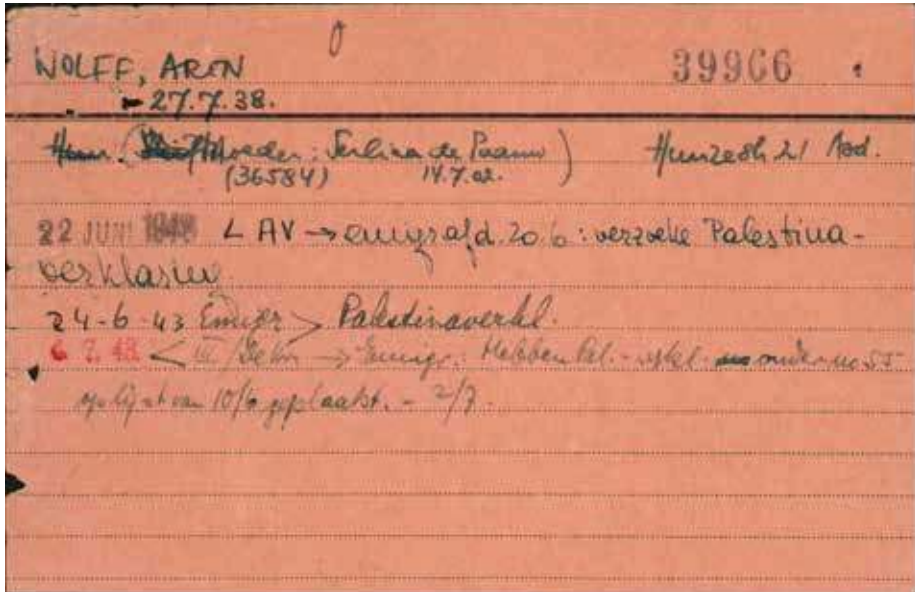 WOLFF, ARON 39966
27.7.38.
(Moeder: de Paauw) Hunzestr 21 Asd.
(36584) 14.7.02.
22 JUNI 1943 < AV → emigr afd. 20.6: verzoeke Palestina-
verklaring
24-6-43 Emigr > Palestinaverkl.
6 7. 43 < III / → Emigr.: Hebben Pal.- verkl. onder no 55
op lijst van 10/6 geplaatst. - 2/7.